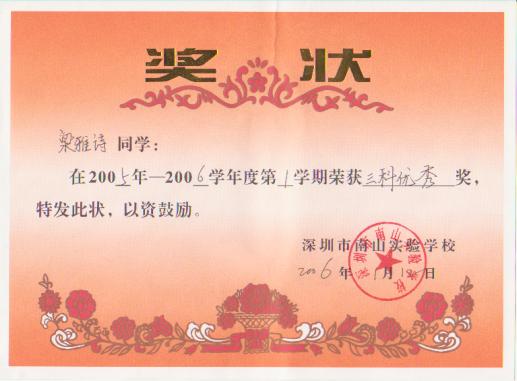 奖状
梁雅诗 同学：
在2005年—2006学年度第1学期荣获三科优秀奖，
特发此状，以资鼓励。
深圳市南山实验学校
2006年1月18日